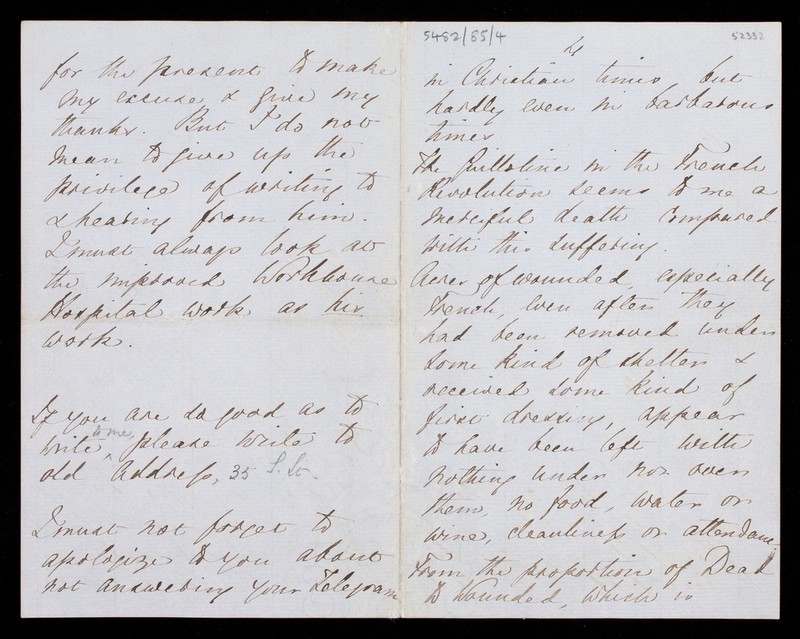 for the present to make
my excuse, & give my
thanks. But I do not
mean to give up the
privilege of writing to
& hearing from him.
I must always look at
the improved Workhouse
Hospital work as his
work.
If you are so good as to
write to me, please write to
old address, 35 S. St.
I must not forget to
apologize to you about
not answering your Telegram
5482/85/4
52332
in Christian times, but
hardly even in barbarous
times.
The Guillotine in the French
Revolution seems to me a
merciful death compared
with this suffering.
Acres of wounded, especially
French, even after they
had been removed under
some kind of shelter &
received some kind of
first dressing, appear
to have been left with
nothing under nor over
them, no food, water or
wine, cleanliness or attendance.
From the proportion of Dead
to Wounded, which is